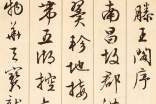 滕王閣序
南昌故郡洪
翼軫地接
帶五湖控
物華天寶龍